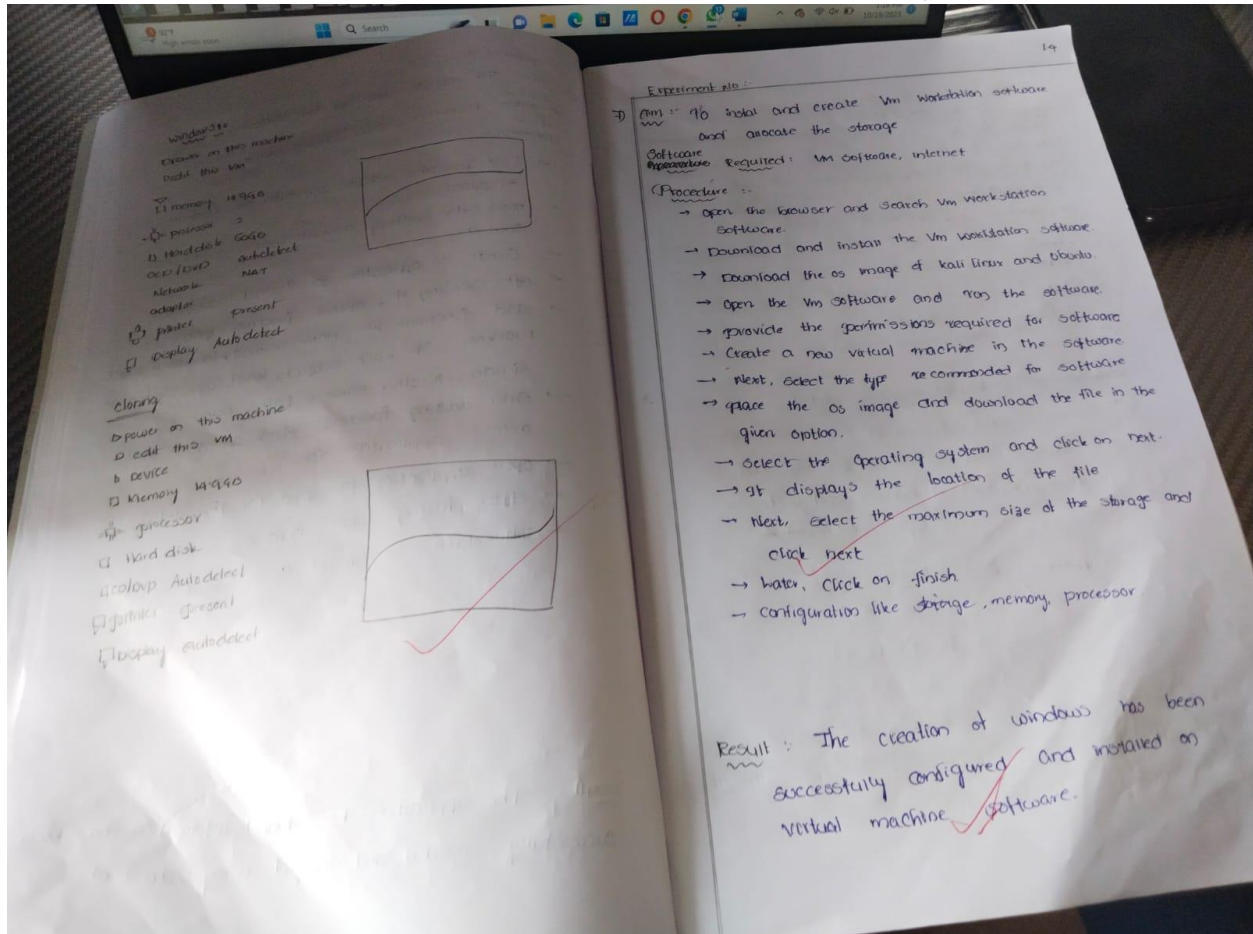 92°F
Search
10/29/2023
windows 10
Power on this machine
edit this VM
memory 14.9GB
processor 2
Hard disk 60GB
autodetect
Network NAT
adapter
printer present
Display Autodetect
cloning
power on this machine
edit this VM
Device
Memory 14.9GB
processor
Hard disk
Autodetect
printer present
Display autodetect
14
Experiment No :-
7) Aim :- To instal and create Vm Workstation software
and allocate the storage
Software
Required : VM Software, internet
Procedure :-
→ open the browser and search Vm workstation
software.
→ Download and install the Vm workstation software.
→ Download the os image of kali linux and Ubuntu.
→ open the Vm software and run the software.
→ provide the permissions required for software
→ Create a new virtual machine in the software
→ Next, select the type recommended for software
→ place the os image and download the file in the
given option.
→ select the operating system and click on next.
→ It displays the location of the file
→ Next, select the maximum size of the storage and
click next
→ Later, click on finish
→ configuration like storage, memory, processor
Result : The creation of windows has been
successfully configured and installed on
virtual machine software.